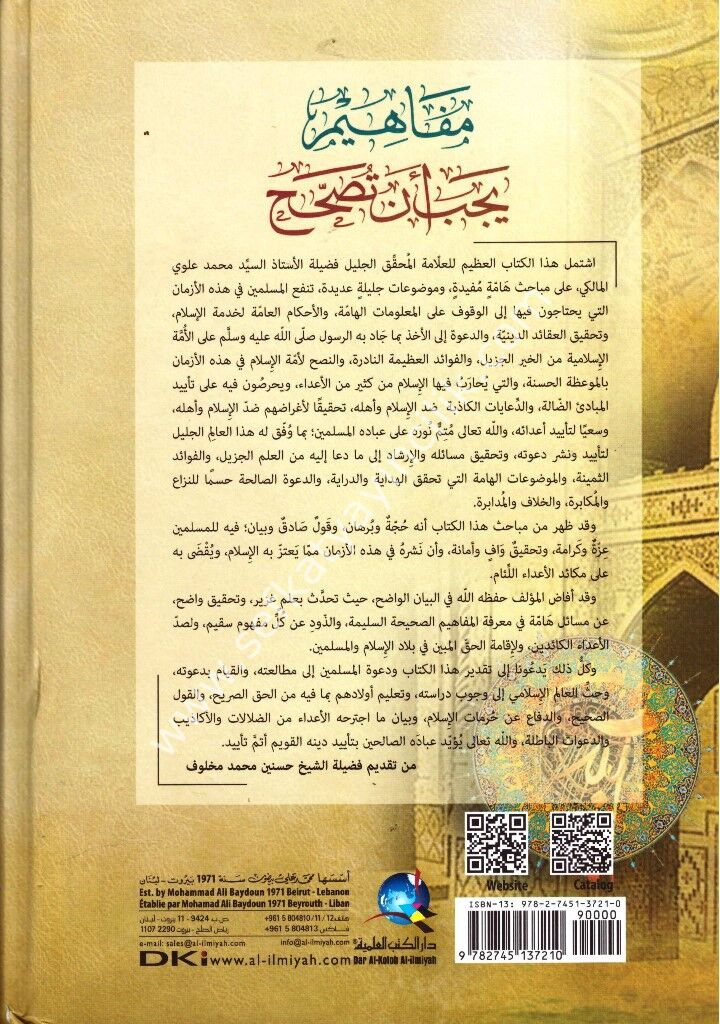 مفاهيم
يجب أن تُصحَّح
اشتمل هذا الكتاب العظيم للعلامة المُحقّق الجليل فضيلة الأستاذ السيَّد محمد علوي
المالكي، على مباحث هَامّةٍ مُفيدةٍ، وموضوعات جليلةٍ عديدة، تنفع المسلمين في هذه الأزمان
التي يحتاجون فيها إلى الوقوف على المعلومات الهامّة، والأحكام العامّة لخدمة الإسلام،
وتحقيق العقائد الدينيّة، والدعوة إلى الأخذ بما جَاد به الرسول صلّى الله عليه وسلَّم على الأُمَّة
الإسلامية من الخير الجزيل، والفوائد العظيمة النادرة، والنصح لأمّة الإسلام في هذه الأزمان
بالموعظة الحسنة، والتي يُحارَبُ فيها الإسلام من كثير من الأعداء، ويحرصُون فيه على تأييد
المبادئ الضّالة، والدِّعايات الكاذبة ضد الإسلام وأهله، تحقيقًا لأغراضهم ضدّ الإسلام وأهله،
وسعيًا لتأييد أعدائه، والله تعالى مُتِمٌّ نورَه على عباده المسلمين؛ بما وُفّق له هذا العالِم الجليل
لتأييد ونشر دعوته، وتحقيق مسائله والإرشاد إلى ما دعا إليه من العلم الجزيل، والفوائد
الثمينة، والموضوعات الهامة التي تحقق الهداية والدراية، والدعوة الصالحة حسمًا للنزاع
والمُكابرة، والخلاف والمُدابرة.
وقد ظهر من مباحث هذا الكتاب أنه حُجّةٌ وبُرهان، وقَولٌ صَادقٌ وبيان؛ فيه للمسلمين
عِزّةٌ وكَرامة، وتحقيقٌ وَافٍ وأمانة، وأن نَشرهُ في هذه الأزمان ممّا يَعتزّ به الإسلام، ويُقْضَى به
على مكائد الأعداء اللِّئام.
وقد أفاض المؤلف حفظه الله في البيان الواضح، حيث تحدَّث بعلم غزير، وتحقيق واضح،
عن مسائل هَامّة في معرفة المفاهيم الصحيحة السليمة، والذّود عن كلّ مفهوم سقيم، ولصدّ
الأعداء الكائدين، ولإقامة الحقّ المبين في بلاد الإسلام والمسلمين.
وكلُّ ذلك يدعُونا إلى تقدير هذا الكتاب ودعوة المسلمين إلى مطالعته، والقيام بدعوته،
وحثُّ العالم الإسلامي إلى وجوب دراسته، وتعليم أولادهم بما فيه من الحق الصريح، والقول
الصحيح، والدفاع عن حُرمات الإسلام، وبيان ما اجترحه الأعداء من الضلالات والأكاذيب
والدعوات الباطلة، والله تعالى يُؤيّد عبادَه الصالحين بتأييد دينه القويم أتمَّ تأييد.
من تقديم فضيلة الشيخ حسنين محمد مخلوف
Website
Catalog
أسسها محمد علي بيضون سنة 1971 بيروت - لبنان
Est. by Mohammad Ali Baydoun 1971 Beirut - Lebanon
Établie par Mohamad Ali Baydoun 1971 Beyrouth - Liban
+961 5 804810/11/12 هاتف
ص.ب 9424 - 11 بيروت - لبنان
+961 5 804813 فاكس
رياض الصلح - بيروت 2290 1107
e-mail: sales@al-ilmiyah.com
info@al-ilmiyah.com
DKi www.al-ilmiyah.com
دار الكتب العلمية
Dar Al-Kotob Al-ilmiyah
ISBN-13: 978-2-7451-3721-0
90000
9 782745 137210